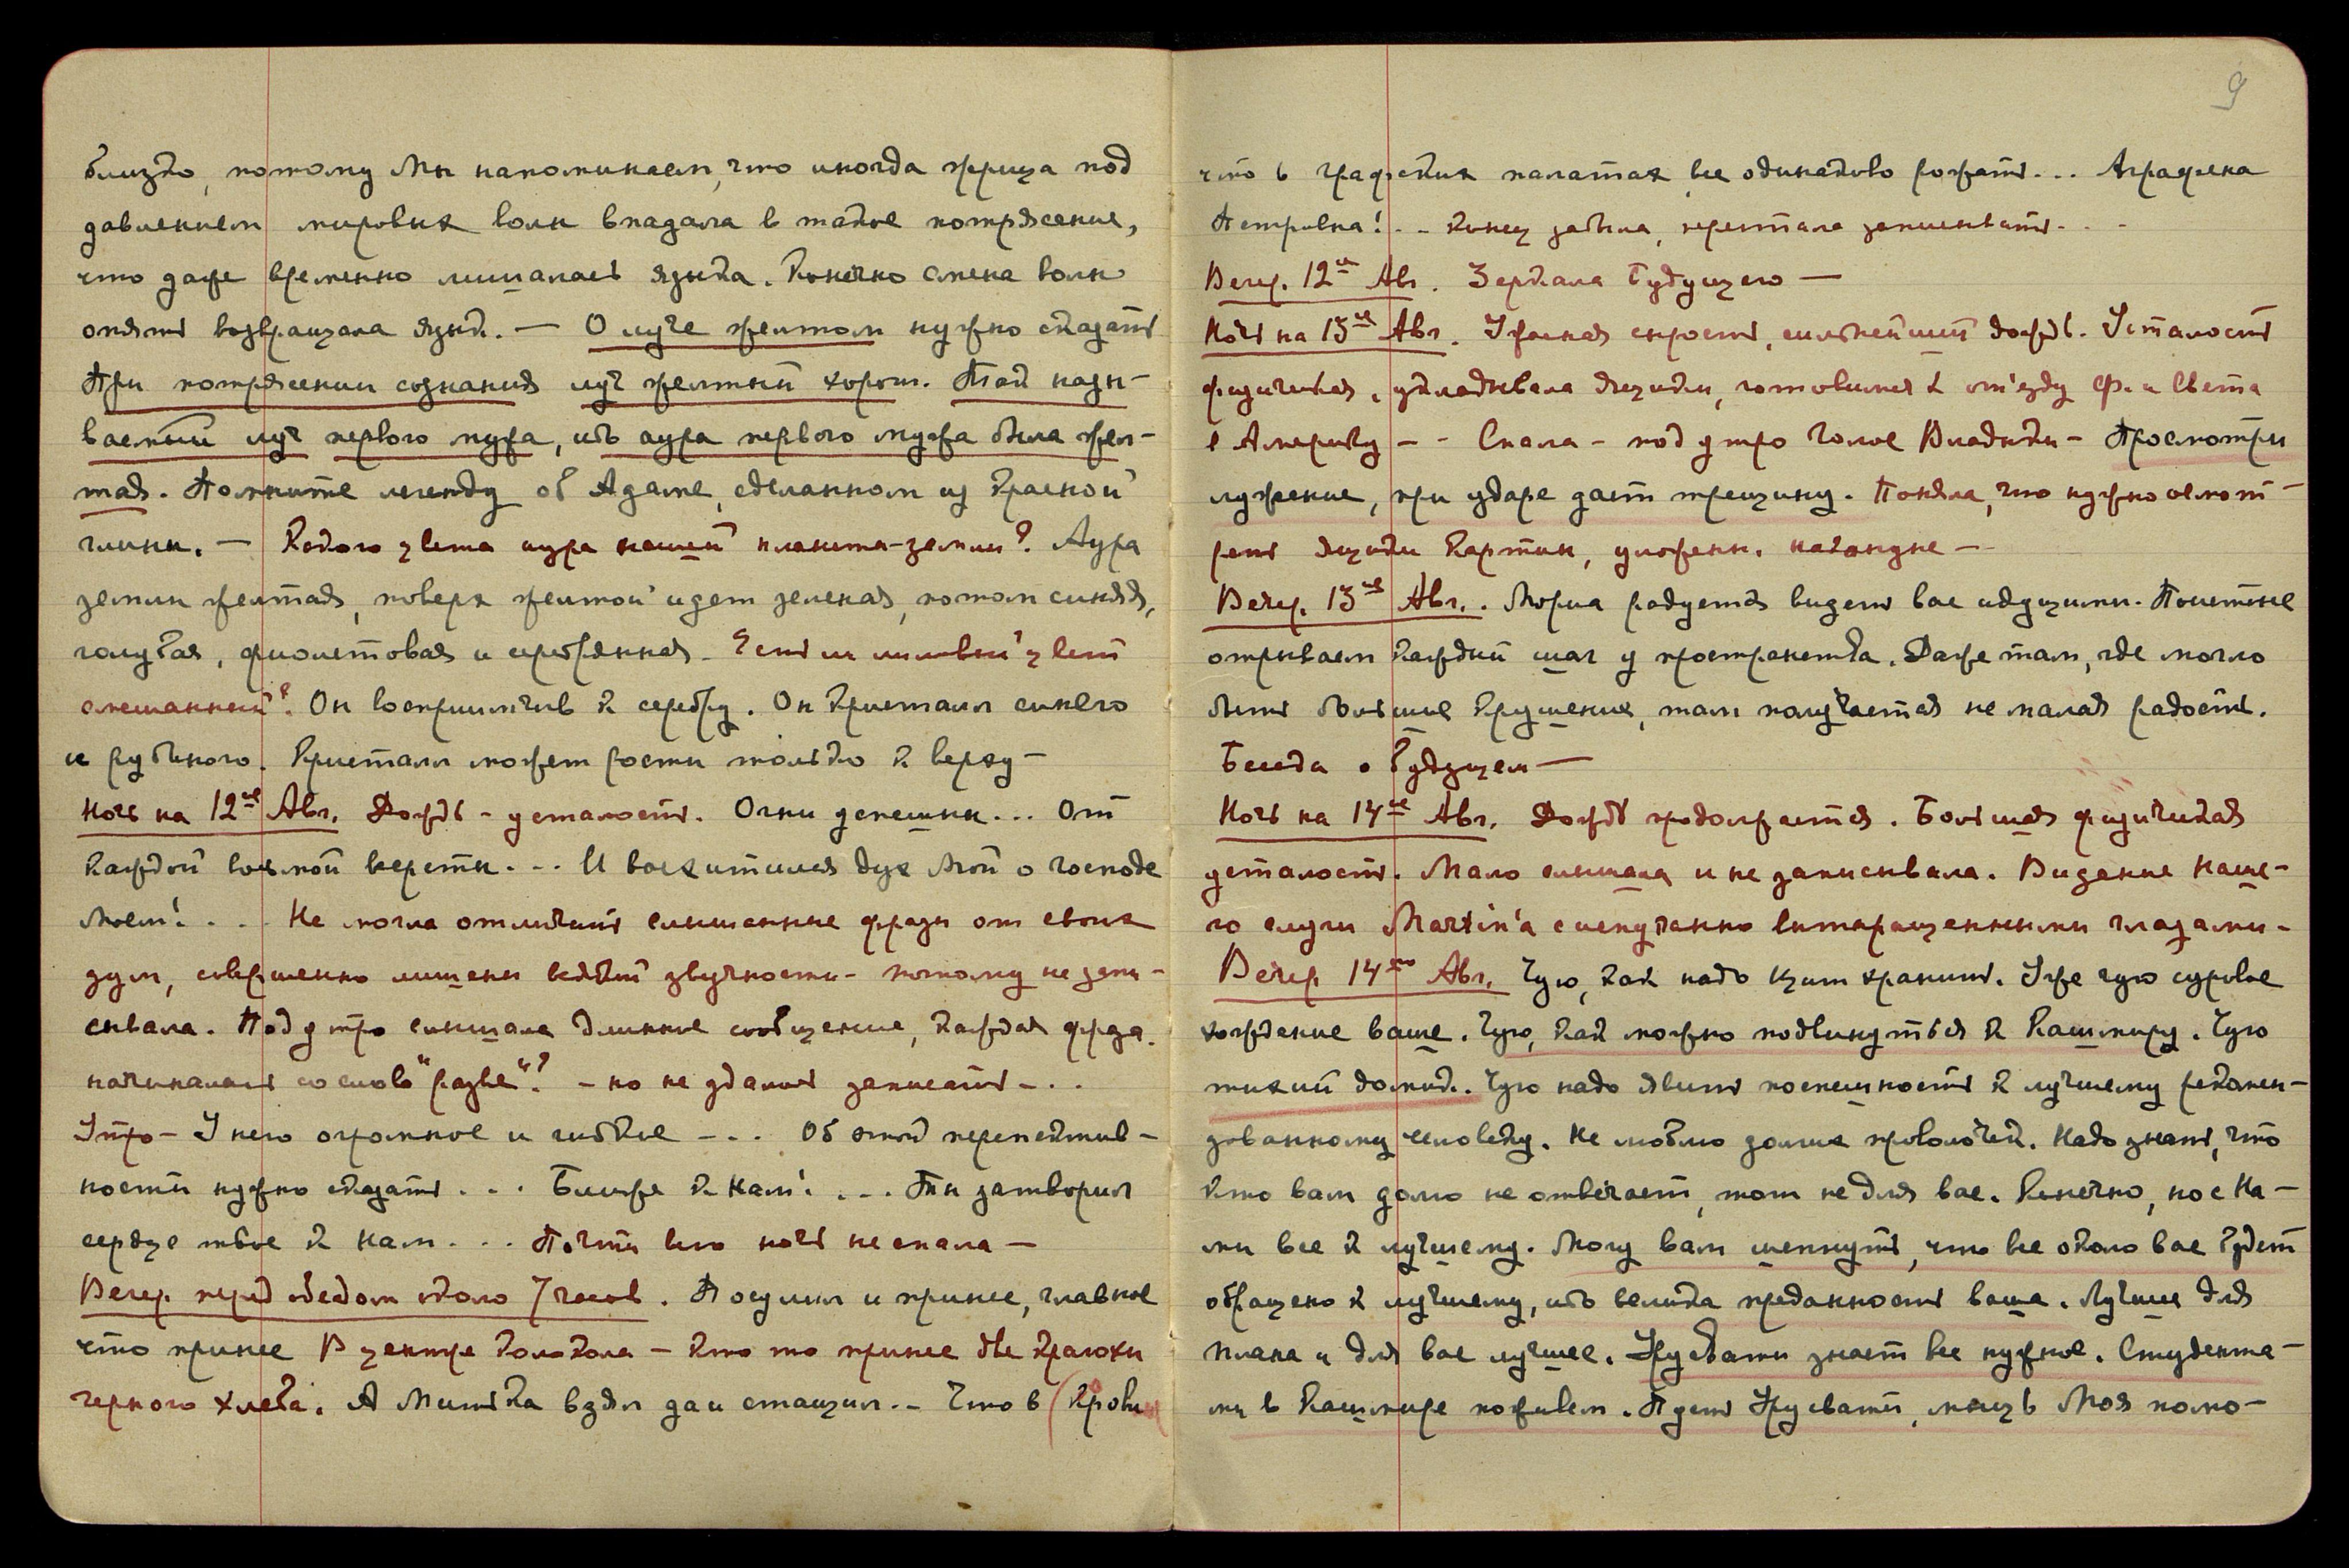 близко, потому Мы напоминаем, что иногда жрица под
давлением мировых волн впадала в такое потрясение,
что даже временно лишалась языка. Конечно смена волн
опять возвращала язык. — О луче желтом нужно сказать
При потрясении сознания луч желтый хорош. Так назы-
ваемый луч первого мужа, ибо аура первого мужа была жел-
тая. Помните легенду об Адаме, сделанном из красной
глины. — Какого цвета аура нашей планеты-земли? Аура
земли желтая, поверх желтой идет зеленая, потом синяя,
голубая, фиолетовая и серебрянная. Есть ли лиловый цвет
смешанный? Он восприимчив к серебру. Он кристалл синего
и рубиного. Кристалл может рости только к верху —
Ночь на 12ое Авг. Дождь - усталость. Огни депешны... От
каждой восьмой версты... И восхитился дух Мой о господе
Моем!... Не могла отличить слышанные фразы от своих
дум, совершенно лишены всякой звучности - потому не запи-
сывала. Под утро слышала длинное сообщение, каждая фраза
начиналась со слов "разве"? - но не удалось записать -..
Утро - У него огромное и гибкое -... Об этой перспектив-
ности нужно сказать... Ближе к Нам!... Ты затворил
сердце твое к Нам... Почти всю ночь не спала —
Вечер. перед обедом около 7 часов. Посулил и принес, главное
что принес В центре колокола - кто то принес две краюхи
черного хлеба. А Митька взял да и стащил.. Что в (крови
9
что в графских палатах все одинаково рожать... Аграфена
Петровна!.. Конец забыла, перестала записывать...
Вечер. 12ое Авг. Зеркала будущего —
Ночь на 13ое Авг. Ужасная сырость, сильнейший дождь. Усталость
физическая, укладывала ящики, готовимся к от'езду Ф. и Света
в Америку -- Спала - под утро голос Владыки - Просмотри
лужение, при ударе дает трещину. Поняла, что нужно осмот-
реть ящики картин, уложенн. накануне —
Вечер. 13ое Авг.. Мория радуется видеть вас идущими. Поистине
отрываем каждый шаг у пространства. Даже там, где могло
быть большое крушение, там получается не малая радость.
Беседа о будущем —
Ночь на 14ое Авг. Дождь продолжается. Большая физическая
усталость. Мало слышала и не записывала. Видение наше-
го слуги Martin'а с испуганно вытаращенными глазами -
Вечер 14го Авг. Чую, как надо щит хранить. Уже чую суровое
хождение ваше. Чую, как можно подвинуться к Кашмиру. Чую
тихий домик. Чую надо явить поспешность к лучшему рекомен-
дованному человеку. Не люблю долгих проволочек. Надо знать, что
кто вам долго не отвечает, тот не для вас. Конечно, но с На-
ми все к лучшему. Могу вам шепнуть, что все около вас будет
обращено к лучшему, ибо велика преданность ваша. Лучшее для
плана и для вас лучшее. Урусвати знает все нужное. Студента-
ми в Кашмире поживем. Пусть Урусвати, мощь Моя помо-